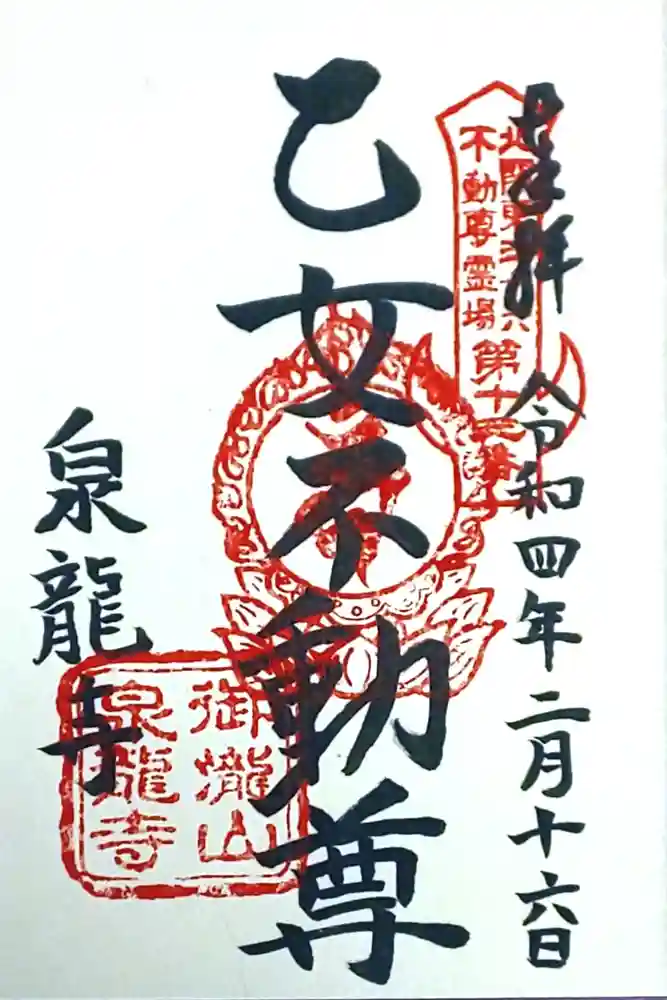 奉拝
令和四年二月十六日
北関東三十六
不動尊霊場
第十三番
乙女不動尊
泉龍寺
御瀧山
泉龍寺